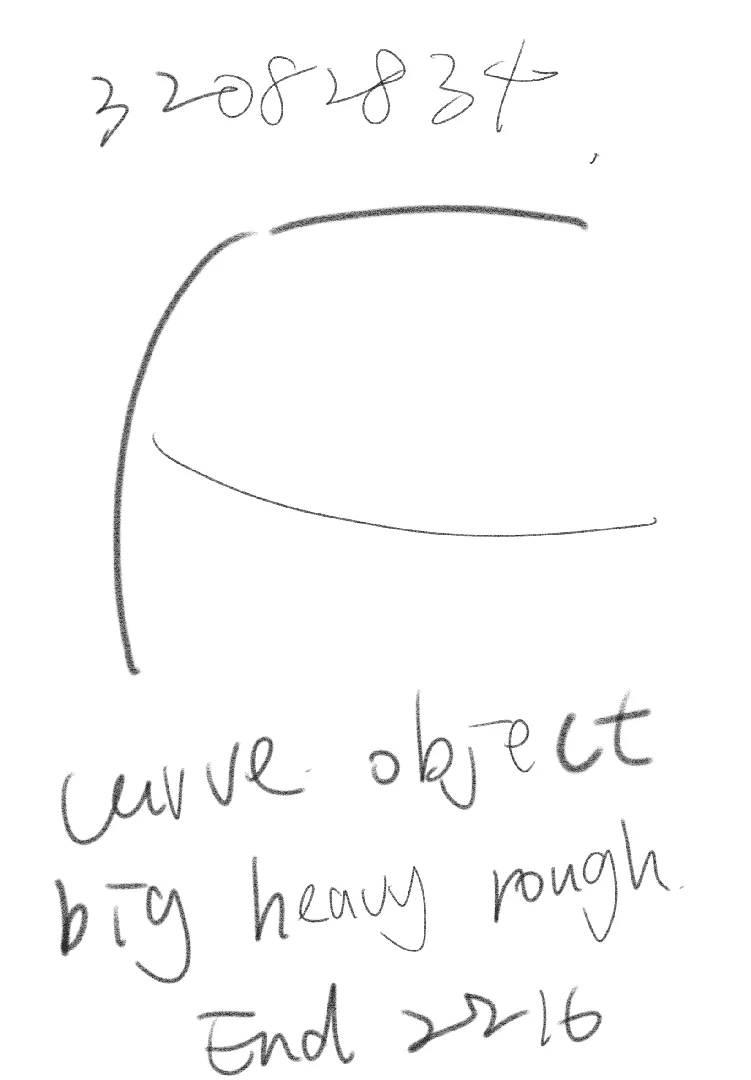 32082834
curve object
big heavy rough.
End 2216